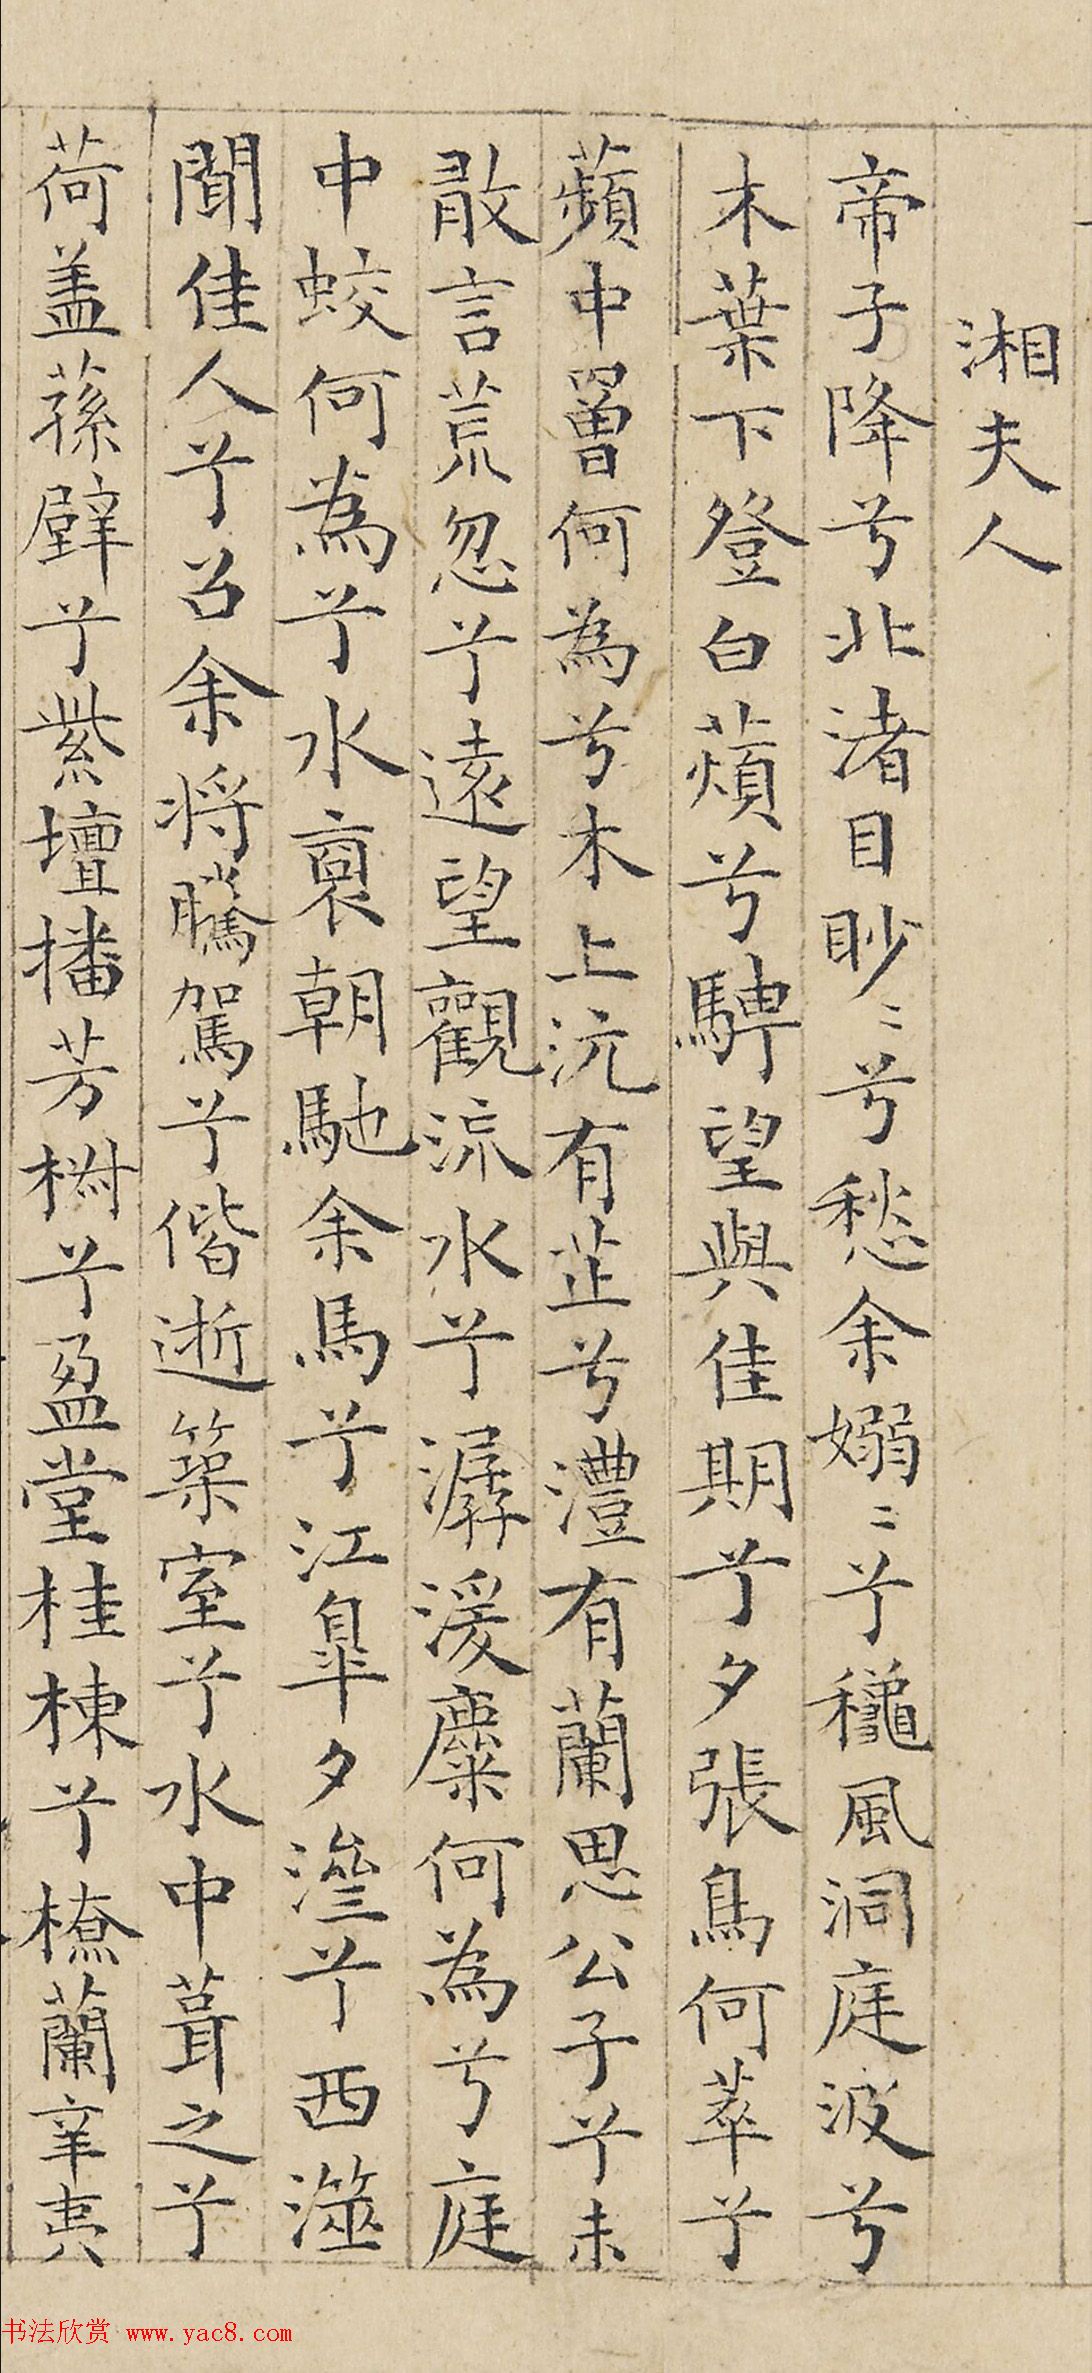 湘夫人
帝子降兮北渚目眇〻兮愁余嫋〻兮穐風洞庭波兮
木葉下登白薠兮騁望與佳期兮夕張鳥何萃兮
蘋中罾何為兮木上沅有芷兮澧有蘭思公子兮未
敢言荒忽兮遠望觀流水兮潺湲麋何為兮庭
中蛟何為兮水裏朝馳余馬兮江皐夕濟兮西澨
聞佳人兮召余將騰駕兮偕逝築室兮水中葺之兮
荷盖蓀壁兮紫壇播芳椒兮盈堂桂棟兮橑蘭辛夷
书法欣赏 www.yac8.com